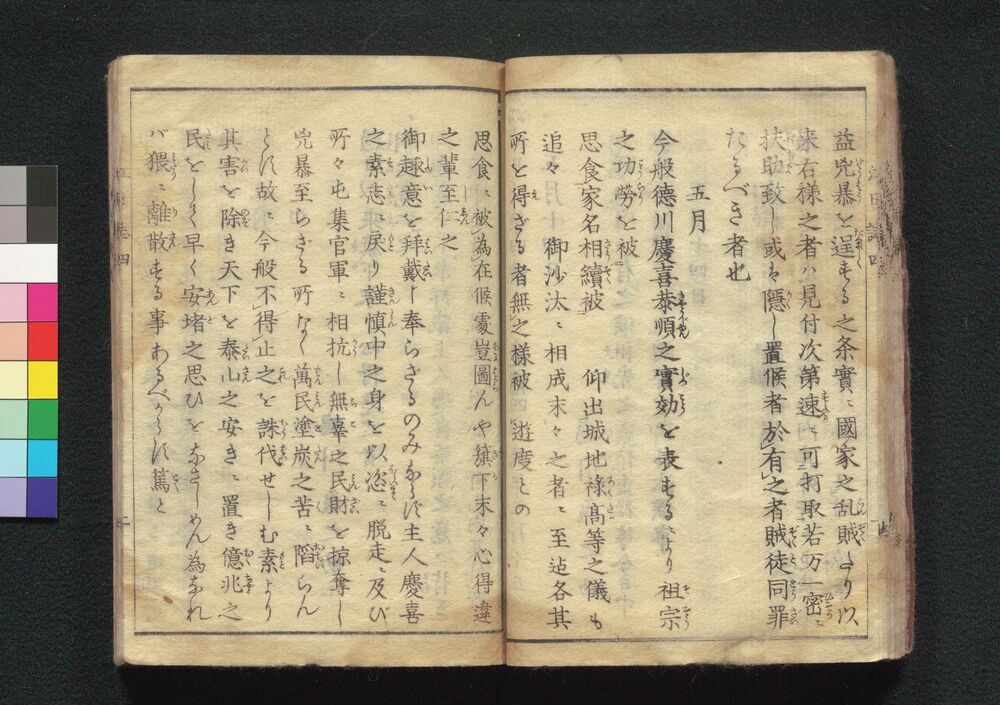 益兇暴を逞するの条實ニ國家之乱賊たり以
来右様之者ハ見付次第速ニ可打取若万一密ニ
扶助致し或は隠し置候者於有之者賊徒同罪
たるべき者也
五月
今般德川慶喜恭順之實効を表するニより 祖宗
之功勞を被
思食家名相續被 仰出城地祿髙等之儀も
追々 御沙汰ニ相成末々之者ニ至迠各其
所を得ざる者無之様被 遊度との
思食ニ被為在候處豈圖んや籏下末々心得違
之輩至仁之
御趣意を拜戴し奉らざるのみならず主人慶喜
之素志ニ戻り謹慎中之身を以恣ニ脱走ニ及び
所々屯集官軍ニ相抗し無辜之民財を掠奪し
兇暴至らざる所なく萬民塗炭之苦ニ陷らん
とす故ニ今般不得止之を誅伐せしむ素より
其害を除き天下を泰山之安きニ置き億兆之
民をして早く安堵之思ひをなさしめん為なれ
バ猥ニ離散する事あるべからず篤と